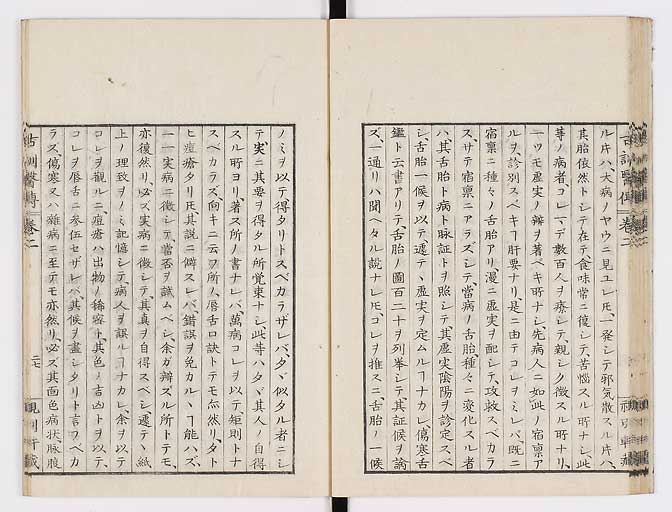 ル片ハ大病ノヤウニ見ユレ𪜈一発シテ邪気散スル片ハ
其胎依然トシテ在テ食味常ニ復シテ苦悩スル所ナシ此
等ノ病者コレマデ数百人ヲ療シテ親シク徴スル所ナリ
一ツモ虚実ノ辨ヲ著ベキ所ナシ先病人ニ如此ノ宿禀ア
ルヲ診別スベキヿ肝要ナリ是ニ由テコレヲミレバ既ニ
宿禀ニ種々ノ舌胎アリ漫ニ虚実ヲ配シテ攻救スベカラ
スサテ宿禀ニアラズシテ當病ノ舌胎種々ニ変化スル者
ハ其舌胎ト病ト脉証トヲ照シテ其虚実陰陽ヲ診定スベ
シ舌胎一候ヲ以テ遽テヽ虚実ヲ定ムルヿナカレ傷寒舌
鑑ト云書アリテ舌胎ノ圖百二十ヲ列挙シテ其証候ヲ論
ズ一通リハ聞ヘタル説ナレ𪜈コレヲ推スニ舌胎ノ一候
ノミヲ以テ得タリトスベカラザレバタヾ似タル者ニシ
テ実ニ其要ヲ得タル所覚束ナシ此等ハタヾ其人ノ自得
スル所ヨリ著ス所ノ書ナレバ萬病コレヲ以テ矩則トナ
スベカラズ向キニ云フ所ノ唇舌口訣トテモ亦然リタト
ヒ痘瘡タリ𪜈其説ニ僻スレバ錯誤ヲ免カルヽヿ能ハズ
一一実病ニ徴シテ當否ヲ試ムベシ余ガ辨ズル所トテモ
亦復然リ必ズ実病ニ徴シテ其真ヲ自得スベシ遽テヽ紙
上ノ理致ヲノミ記憶シテ病人ヲ誤ルヿナカレ余ヲ以テ
コレヲ觀ルニ痘瘡ハ出物ノ稀容ト其色ノ吉凶トヲ以テ
コレヲ唇舌ニ参伍セザレバ其候ヲ盡シタリト言フベカ
ラズ傷寒又ハ雑病ニ至テモ亦然リ必ズ其面色病状脉腹
古訓醫傳 巻二
二七